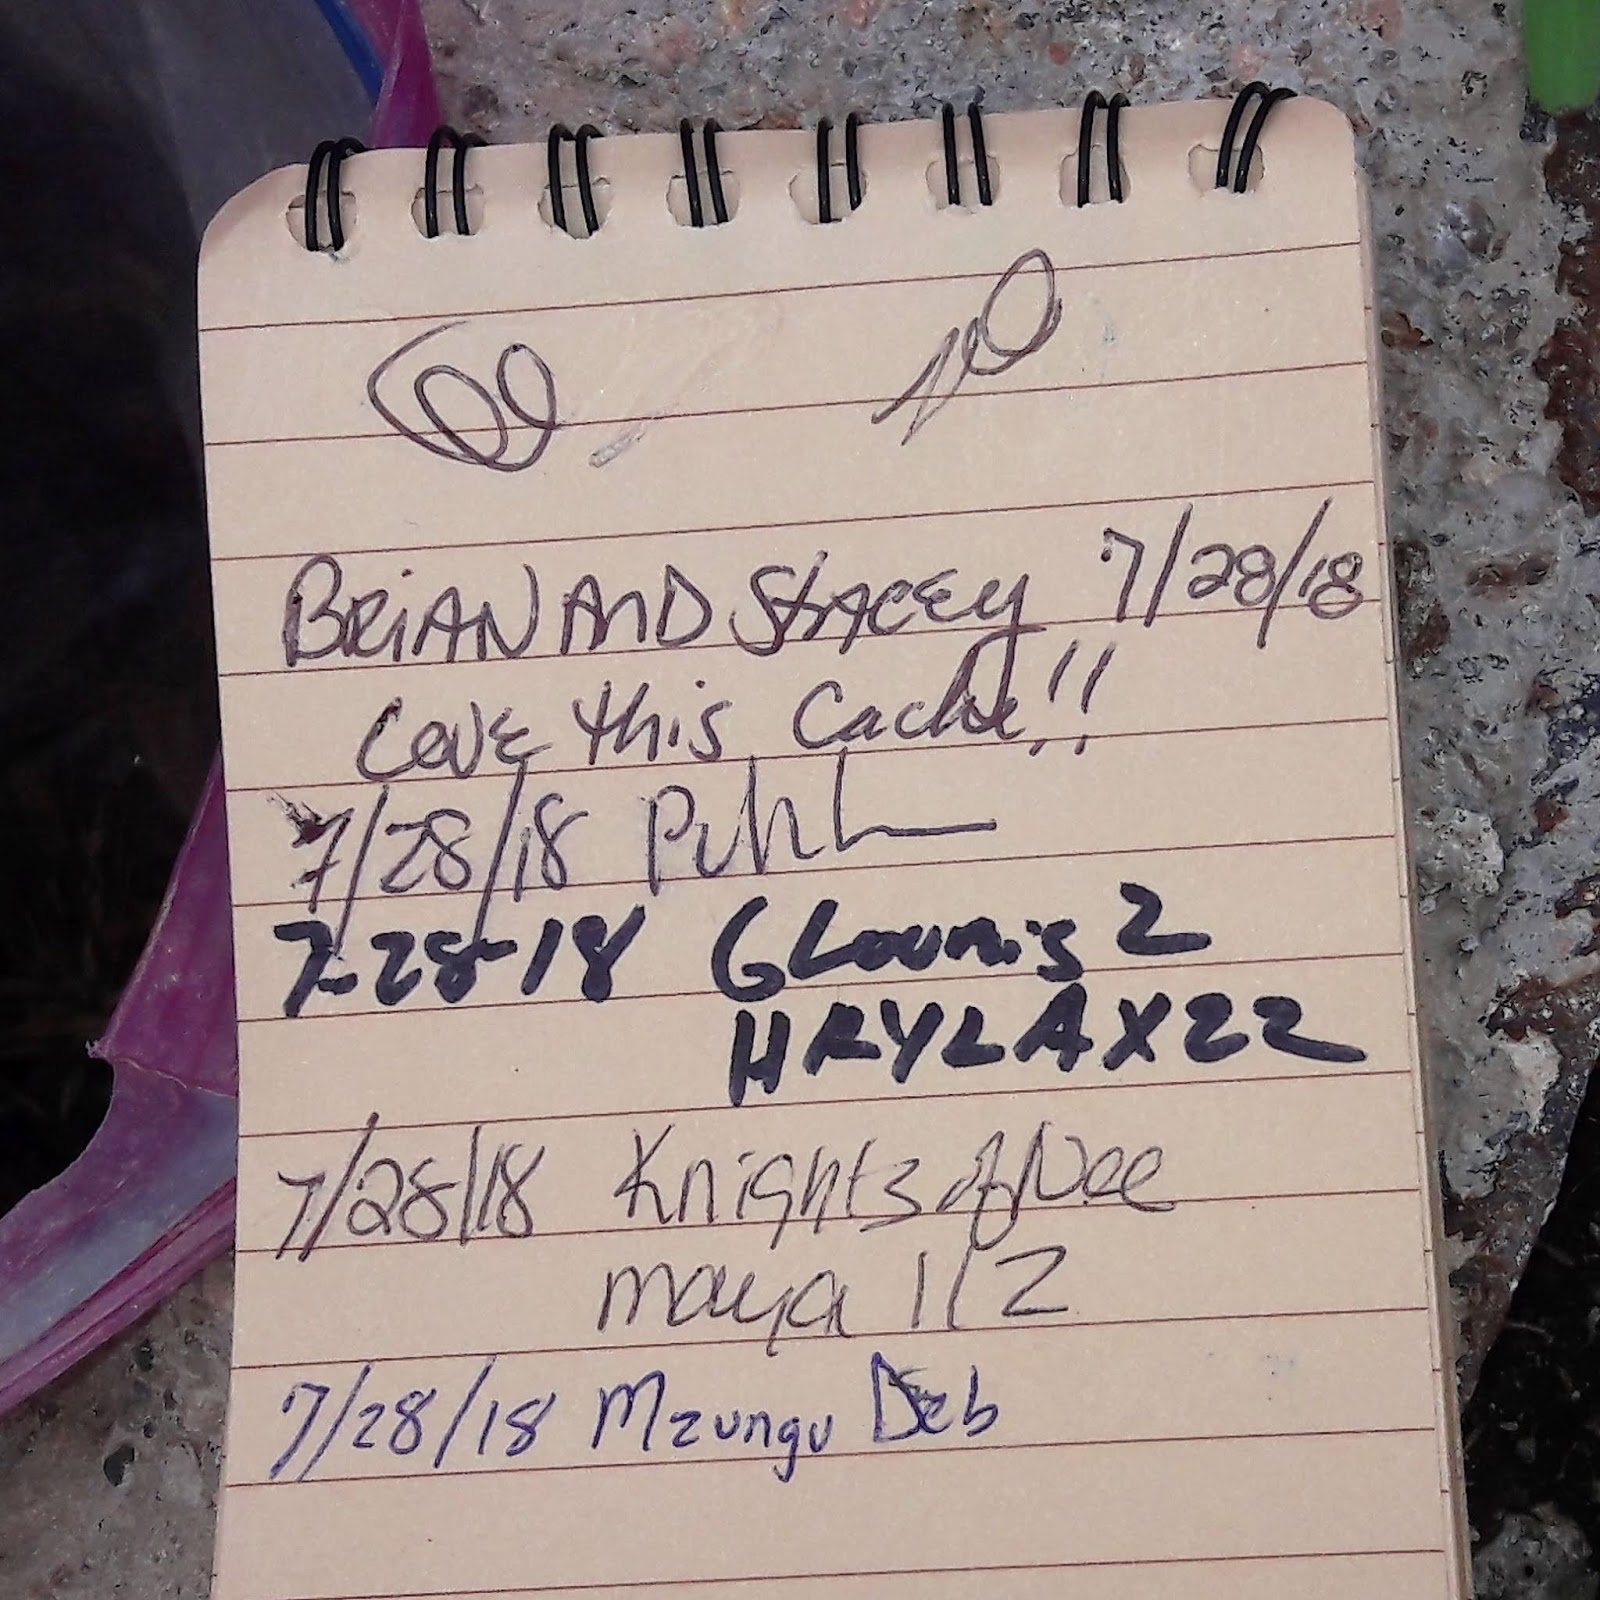 BRiAN AND StACEY 7/28/18
Love this Cache!!
7/28/18
7-28-18 GLoomis 2
HRYLAX22
7/28/18 Knights of Nee
maya 112
7/28/18 Mzungu Deb